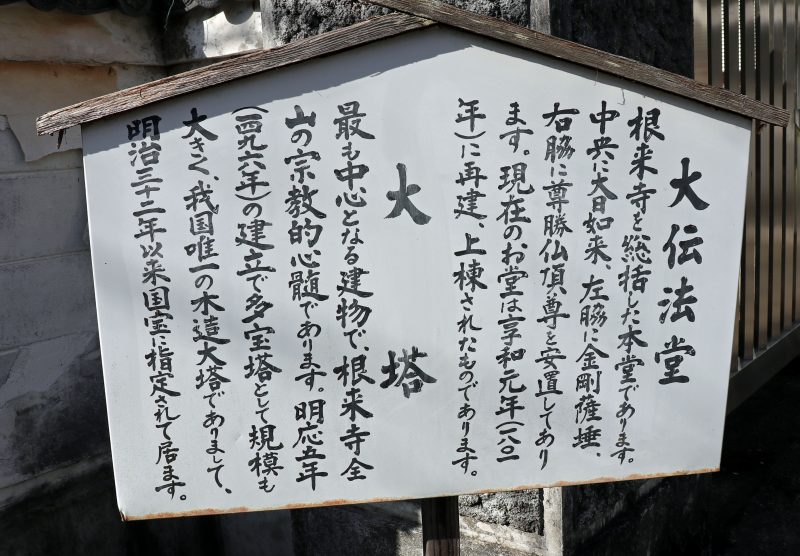 大伝法堂
根来寺を総括した本堂であります。
中央に大日如来、左脇に金剛薩埵、
右脇に尊勝仏頂尊を安置してあり
ます。現在のお堂は享和元年(一八〇一
年)に再建、上棟されたものであります。
大塔
最も中心となる建物で、根来寺全
山の宗教的心髄であります。明応五年
(一四九六年)の建立で多宝塔として規模も
大きく、我国唯一の木造大塔でありまして、
明治三十二年以来国宝に指定されて居ます。